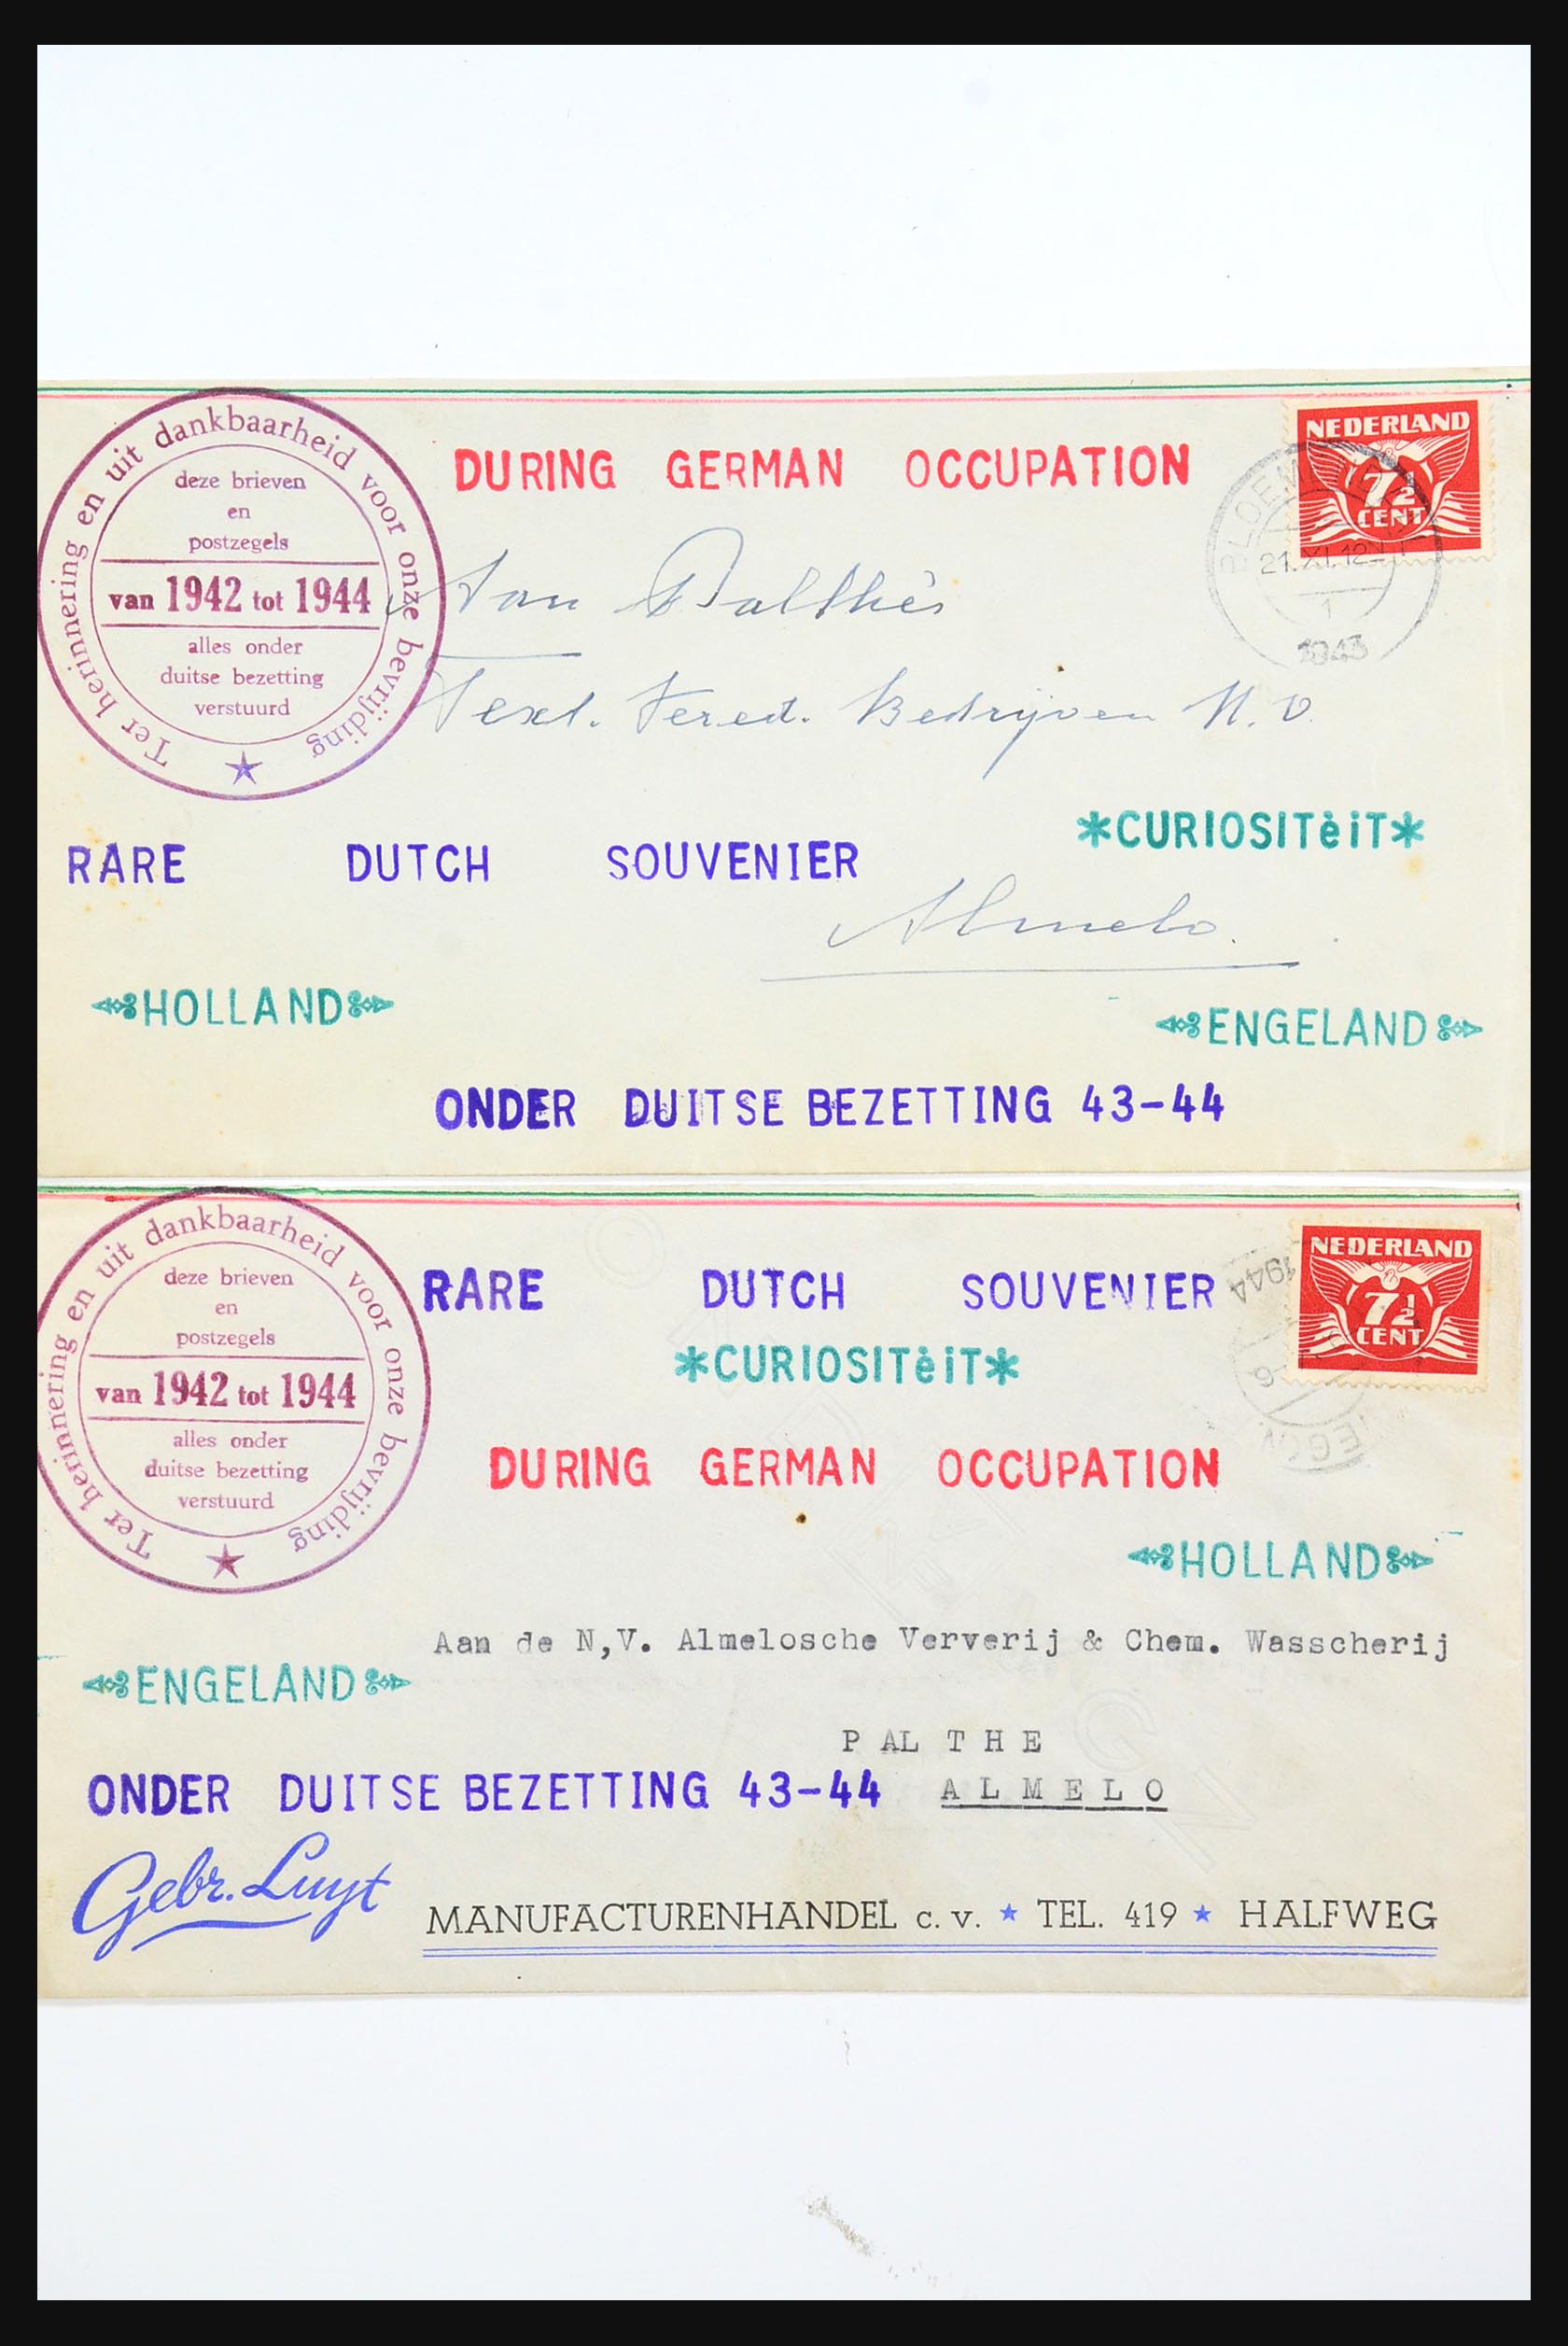 Ter herinnering en uit dankbaarheid voor onze bevrijding
deze brieven
en
postzegels
van 1942 tot 1944
alles onder
duitse bezetting
verstuurd
DURING GERMAN OCCUPATION
NEDERLAND
7½
CENT
21.XI.12
1
1943
Aan Palthe's
Text. Vered. Bedrijven N.V.
*CURIOSITèiT*
RARE DUTCH SOUVENIER
Almelo.
HOLLAND
ENGELAND
ONDER DUITSE BEZETTING 43-44
Ter herinnering en uit dankbaarheid voor onze bevrijding
deze brieven
en
postzegels
van 1942 tot 1944
alles onder
duitse bezetting
verstuurd
RARE DUTCH SOUVENIER
1944
NEDERLAND
7½
CENT
*CURIOSITèiT*
DURING GERMAN OCCUPATION
HOLLAND
Aan de N,V. Almelosche Ververij & Chem. Wasscherij
ENGELAND
P AL T H E
ONDER DUITSE BEZETTING 43-44
A L M E L O
Gebr. Luyt
MANUFACTURENHANDEL c. v. ★ TEL. 419 ★ HALFWEG